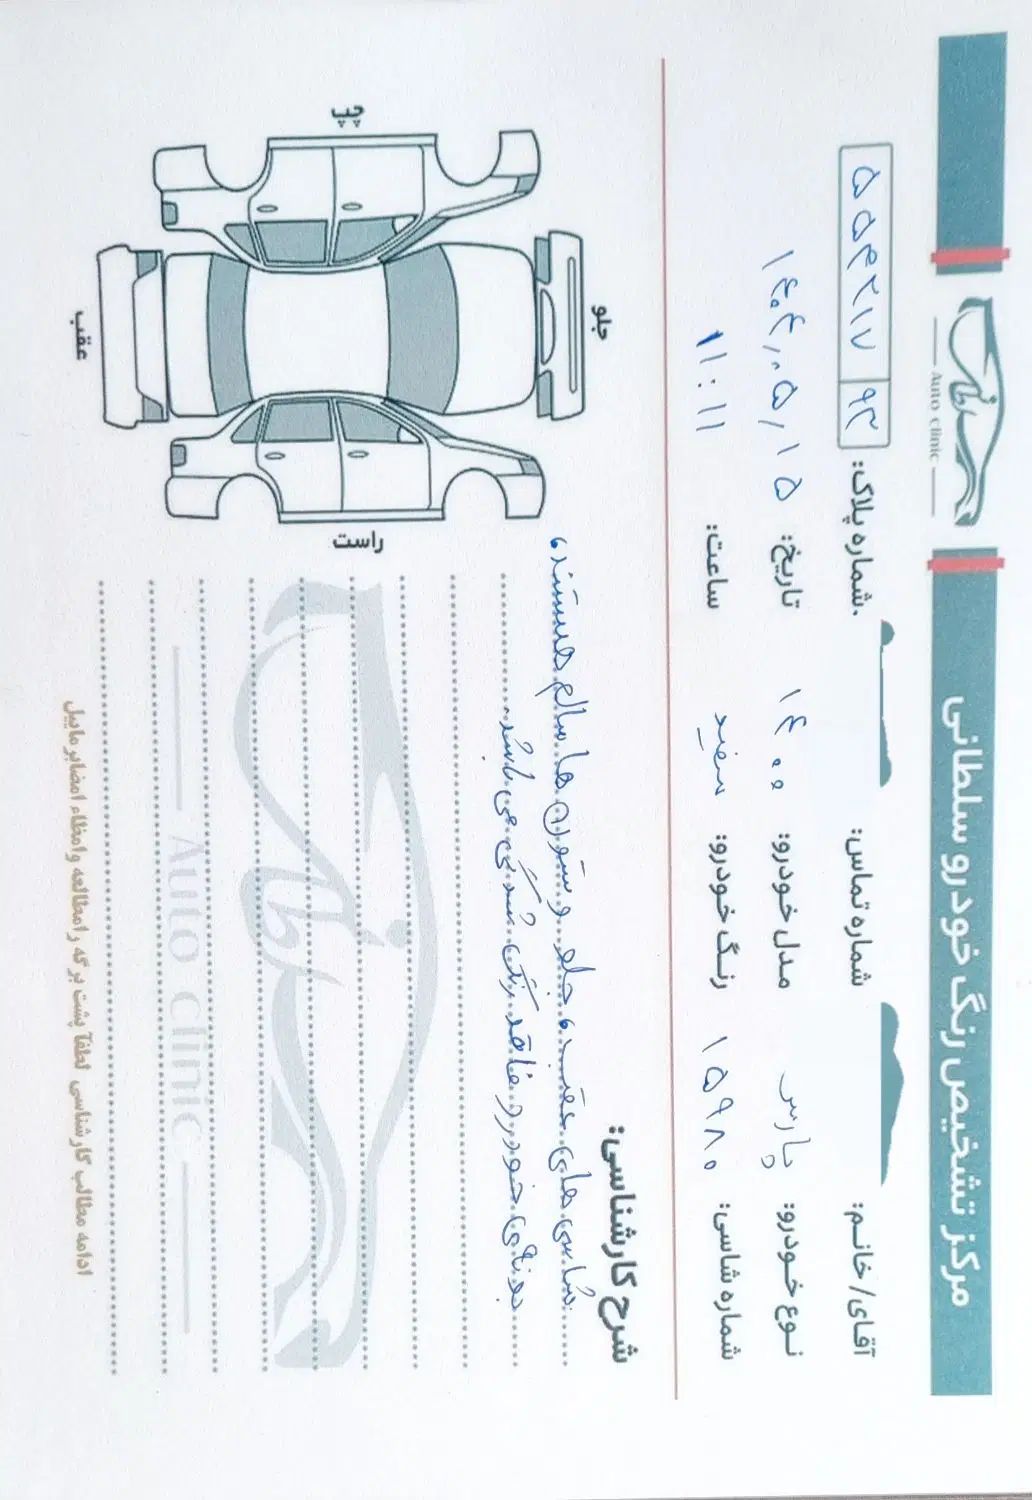 مرکز تشخیص رنگ خودرو سلطانی
Auto clinic
آقای/خانم:
شماره تماس:
شماره پلاک:
نوع خودرو: پارس
مدل خودرو: ۱۴۰۰
تاریخ: ۱۴۰۴,۰۵,۱۵
شماره شاسی: ۱۵۹۸۰
رنگ خودرو: سفید
ساعت: ۱۱:۱۱
شرح کارشناسی:
شاسی های عقب، جلو و ستون ها سالم هستند،
بدنه‌ی خودرو فاقد رنگ شدگی می باشد.
چپ
جلو
عقب
راست
Auto clinic
ادامه مطالب کارشناسی لطفاً پشت برگه را مطالعه و امضاء